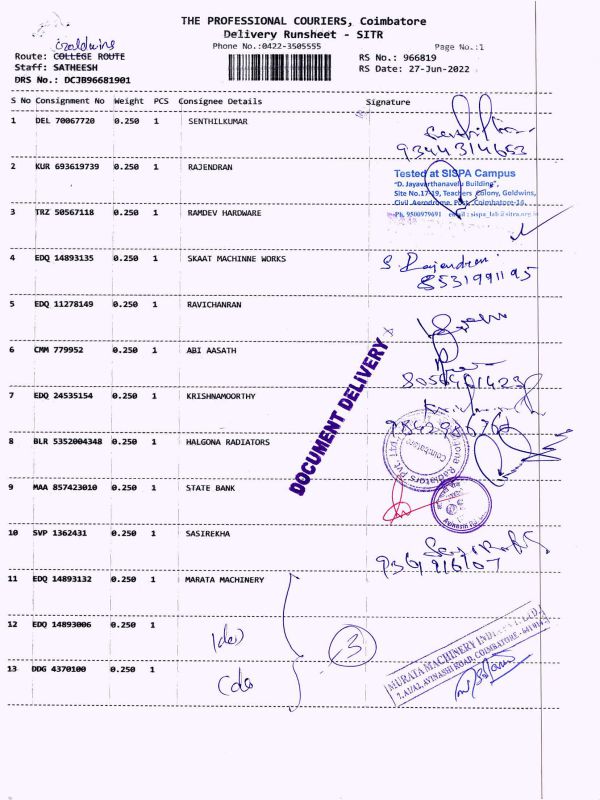 THE PROFESSIONAL COURIERS, Coimbatore
Delivery Runsheet - SITR
Phone No.:0422-3505555
Page No.:1
Goldwins
Route: COLLEGE ROUTE
RS No.: 966819
Staff: SATHEESH
RS Date: 27-Jun-2022
DRS No.: DCJB96681901
S No Consignment No Weight PCS Consignee Details Signature
1 DEL 70067720 0.250 1 SENTHILKUMAR
9344314653
2 KUR 693619739 0.250 1 RAJENDRAN
Tested at SISPA Campus
"D. Jayavarthanavelu Building",
Site No.17-19, Teachers Colony, Goldwins,
Civil Aerodrome Post, Coimbatore-14.
Ph. 9500979691 email : sispa_lab@sitra.org.in
3 TRZ 50567118 0.250 1 RAMDEV HARDWARE
4 EDQ 14893135 0.250 1 SKAAT MACHINNE WORKS
S Rajendran
8531991195
5 EDQ 11278149 0.250 1 RAVICHANRAN
6 CMM 779952 0.250 1 ABI AASATH
DOCUMENT DELIVERY
7 EDQ 24535154 0.250 1 KRISHNAMOORTHY
8 BLR 5352004348 0.250 1 HALGONA RADIATORS
Radiators Pvt. Ltd.
Coimbatore
9 MAA 857423010 0.250 1 STATE BANK
10 SVP 1362431 0.250 1 SASIREKHA
11 EDQ 14893132 0.250 1 MARATA MACHINERY
12 EDQ 14893006 0.250 1
3
13 DDG 4370100 0.250 1
MURATA MACHINERY INDIA PVT. LTD.